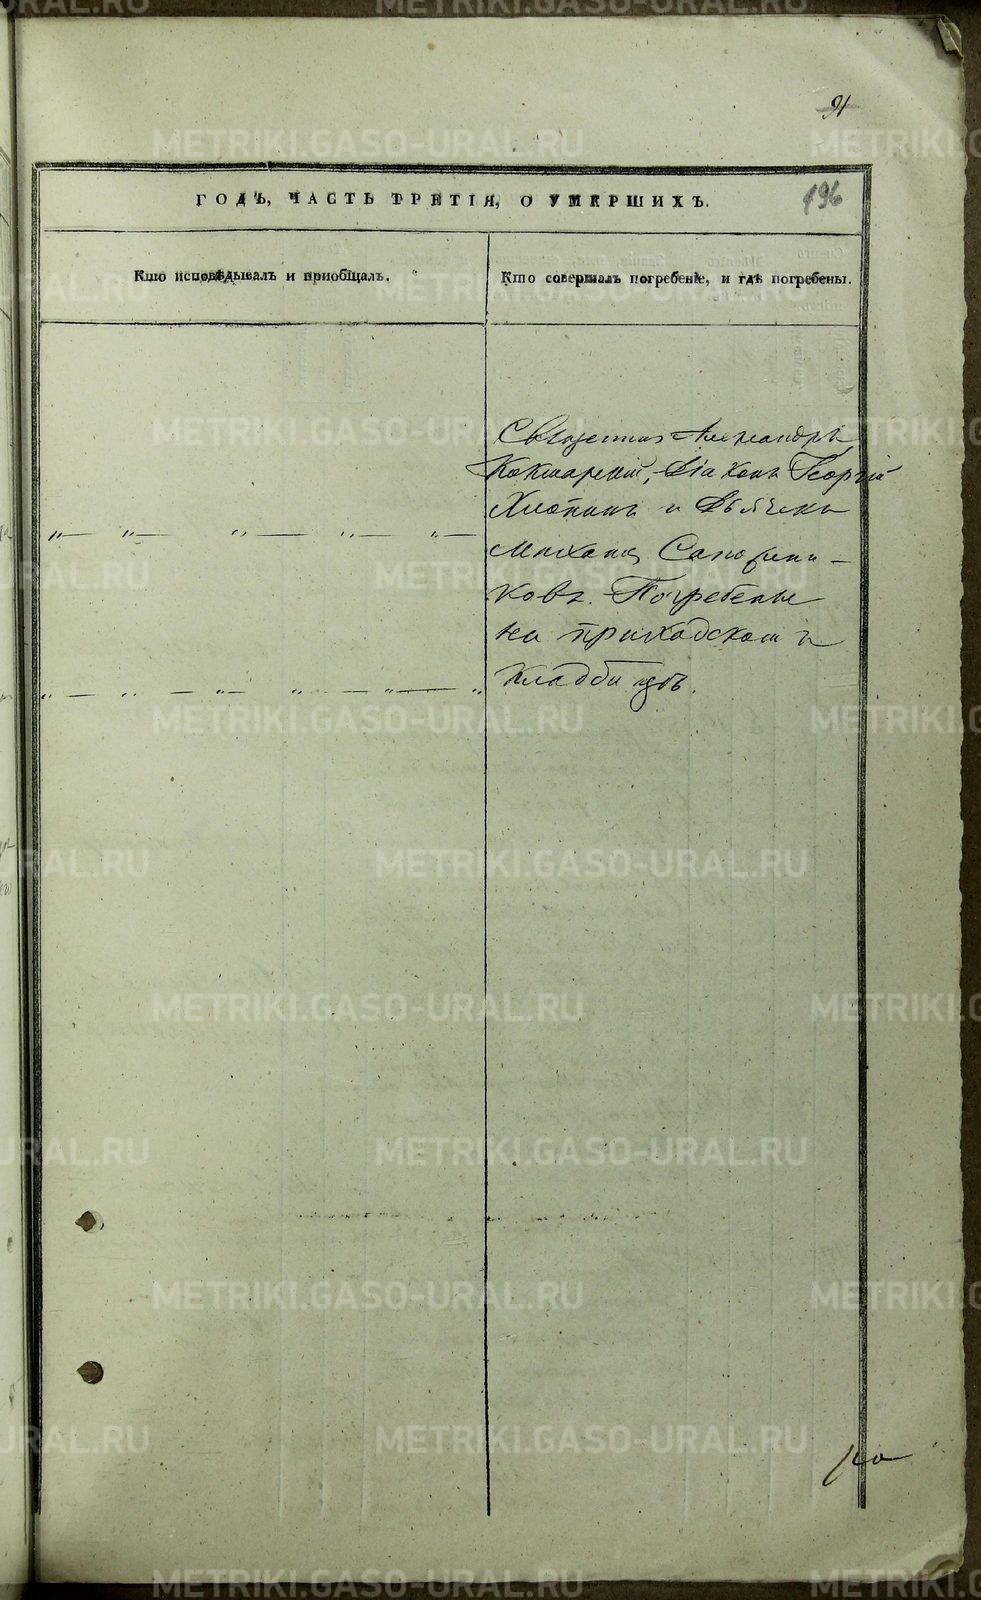 91
196
ГОДЪ, ЧАСТЬ ТРЕТІЯ, О УМЕРШИХЪ.
Кто исповѣдывалъ и приобщалъ.
Кто совершалъ погребеніе, и гдѣ погребены.
Священникъ Александръ
Кокшарскій, Діаконъ Георгій
Хлопинъ и Дьячекъ
Михаилъ
ковъ. Погребены
на приходскомъ
кладбищѣ.
METRIKI.GASO-URAL.RU